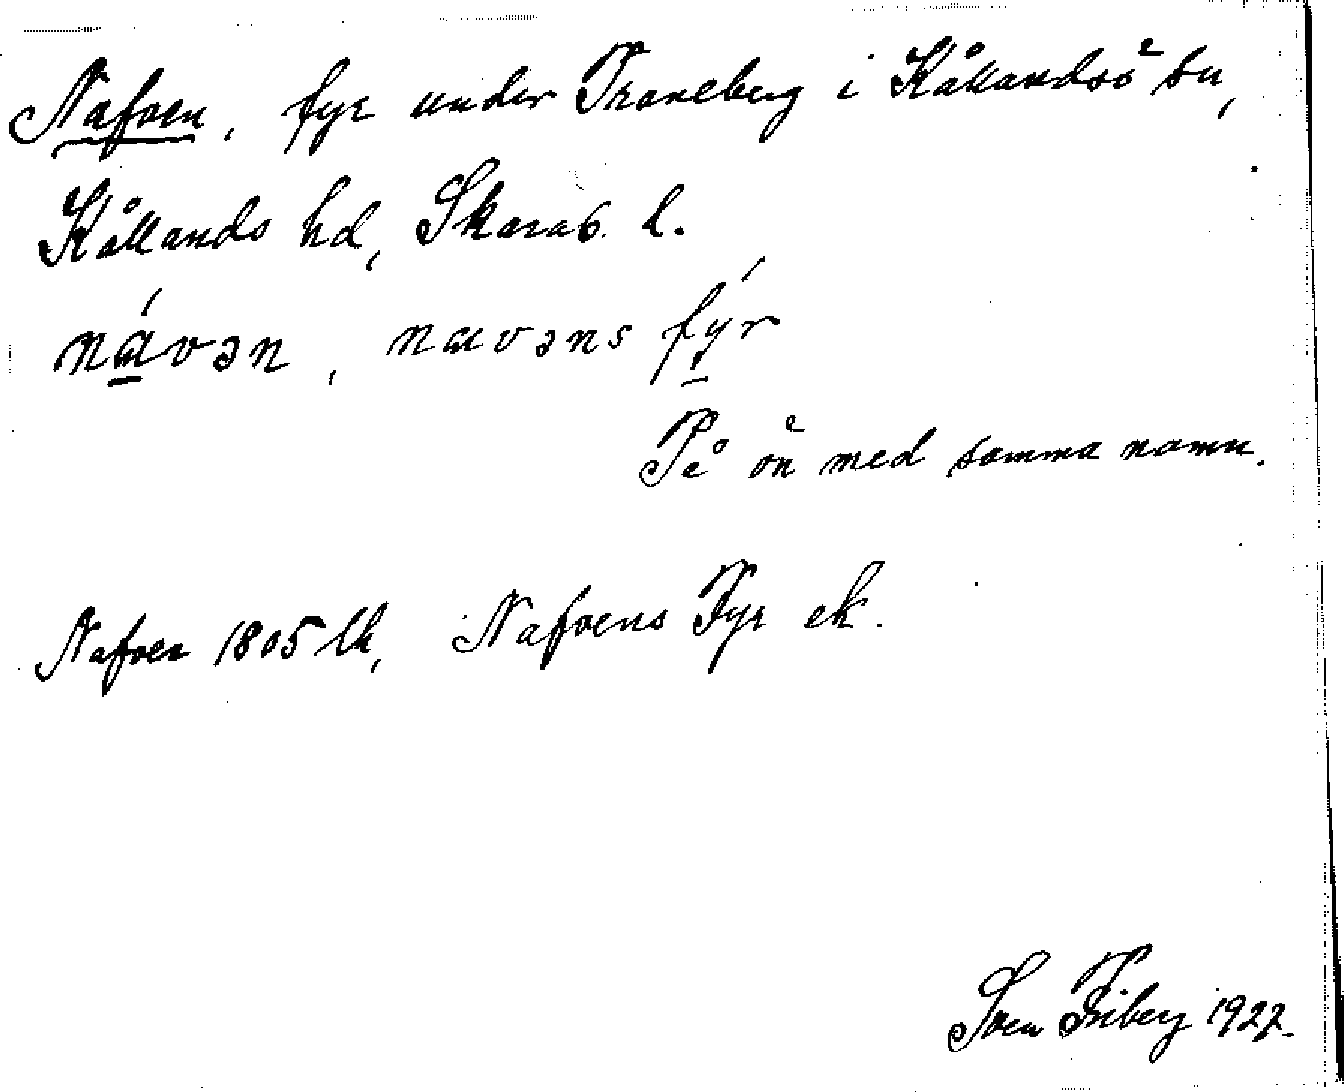 Nafven, fyr under Traneberg i Kållandsö sn,
Kållands hd, Skarab. l.
návən, navəns fýr
På ön med samma namn.
Nafven 1805 lk, Nafvens Fyr ek.
Sven Friberg 1922.